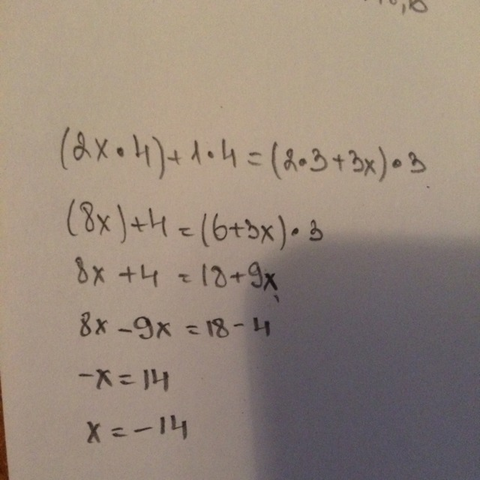 (2x•4)+1•4=(2•3+3x)•3
(8x)+4=(6+3x)•3
8x+4=18+9x
8x-9x=18-4
-x=14
x=-14